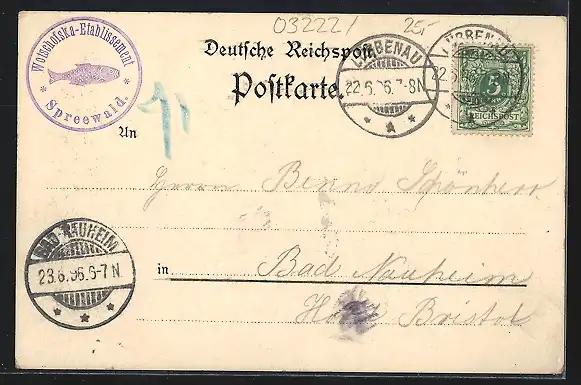 03222/ 25,-
Wotschofska-Etablissement
* Spreewald. *
Deutsche Reichspost
Postkarte.
LÜBBENAU
22.6.96.7-8N
LÜBBENAU
22.6.96.7-8N
5
REICHSPOST
An
Herrn Benno Schönherr
in Bad Nauheim
Hotel Bristol
BAD NAUHEIM
23.6.96.6-7N